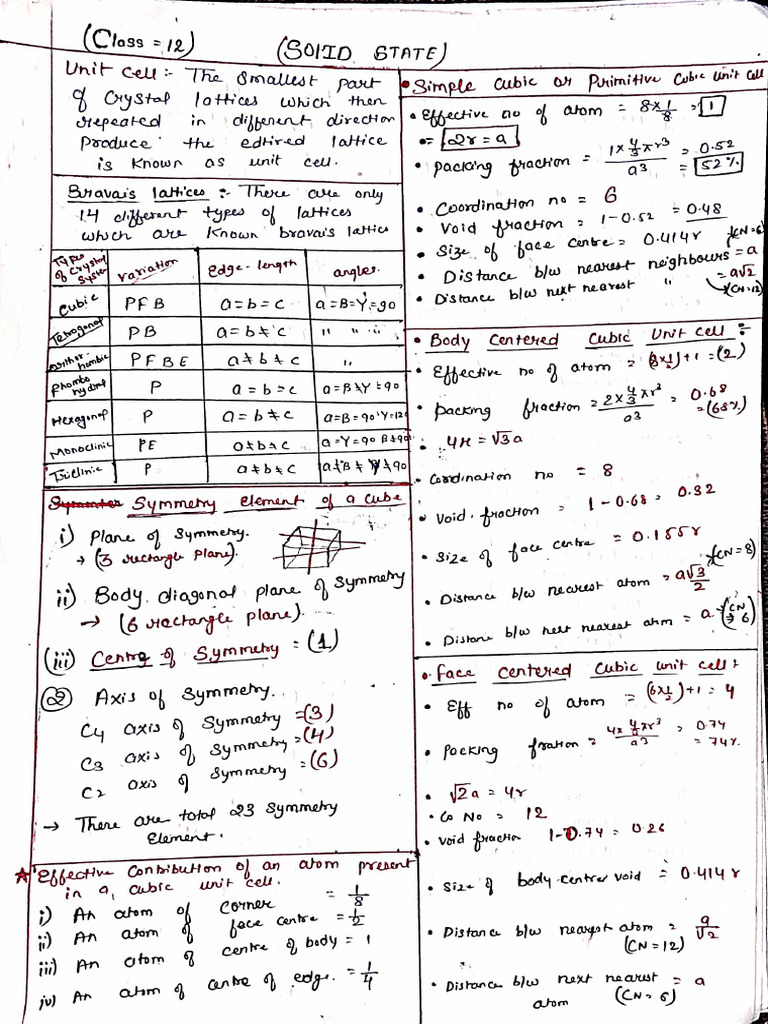 (Class = 12)
(SOLID STATE)
Unit Cell :- The Smallest Part
of Crystal lattices which then
repeated in different direction
Produce the edtired lattice
is known as unit cell.
Bravais lattices :- There are only
14 different types of lattices
which are known bravais lattics
Types of Crystal System variation Edge-length angles
Cubic PFB a=b=c a=B=Y=90
Tetragonal PB a=b≠c " " "
orthorhombic PFBE a≠b≠c "
Rhombohydral P a=b=c a=B≠Y=90
Hexagonal P a=b≠c a=B=90°Y=120
Monoclinic PE a≠b≠c a=Y=90 B≠90
Triclinic P a≠b≠c a≠B≠Y≠90
Symmetry element of a cube
i) Plane of Symmetry.
→ (3 rectangle plane).
ii) Body diagonal plane of Symmetry
→ (6 rectangle plane).
(iii) Centre of Symmetry = (1)
② Axis of Symmetry.
C4 axis of Symmetry =(3)
C3 axis of Symmetry =(4)
C2 axis of Symmetry =(6)
→ There are total 23 Symmetry
Element.
★ Effective Contribution of an atom present
in a, cubic unit cell.
i) An atom of corner = 1/8
ii) An atom of face centre = 1/2
iii) An atom of centre of body = 1
iv) An atom of centre of edge. = 1/4
• Simple Cubic or Primitive Cubic Unit Cell
• Effective no of atom = 8×1/8 = 1
= 2r = a
• Packing fraction = 1×4/3πr³/a³ = 0.52
= 52%
• Coordination no = 6
• Void fraction = 1-0.52 = 0.48
• Size of face centre = 0.414r
• Distance b/w nearest neighbours = a (CN=6)
• Distance b/w next nearest " = a√2 (CN=12)
• Body Centered Cubic Unit cell :-
• Effective no of atom = (8×1/8)+1 = (2)
• Packing fraction = 2×4/3πr³/a³ = 0.68
= (68%)
• 4r = √3a
• Cordination no = 8
• Void fraction = 1-0.68 = 0.32
• Size of face centre = 0.155r
• Distance b/w nearest atom = a√3/2 (CN=8)
• Distane b/w next nearest atm = a (CN → 6)
• Face Centered Cubic unit cell :
• Eff no of atom = (6×1/2)+1 = 4
• Packing fration = 4×4/3πr³/a³ = 0.74
= 74%.
• √2a = 4r
• Co No = 12
• Void fraction 1-0.74 = 0.26
• Size of body centre void = 0.414r
• Distance b/w nearest atom = a/√2
(CN=12)
• Distance b/w next nearest = a
atom (CN= 6)